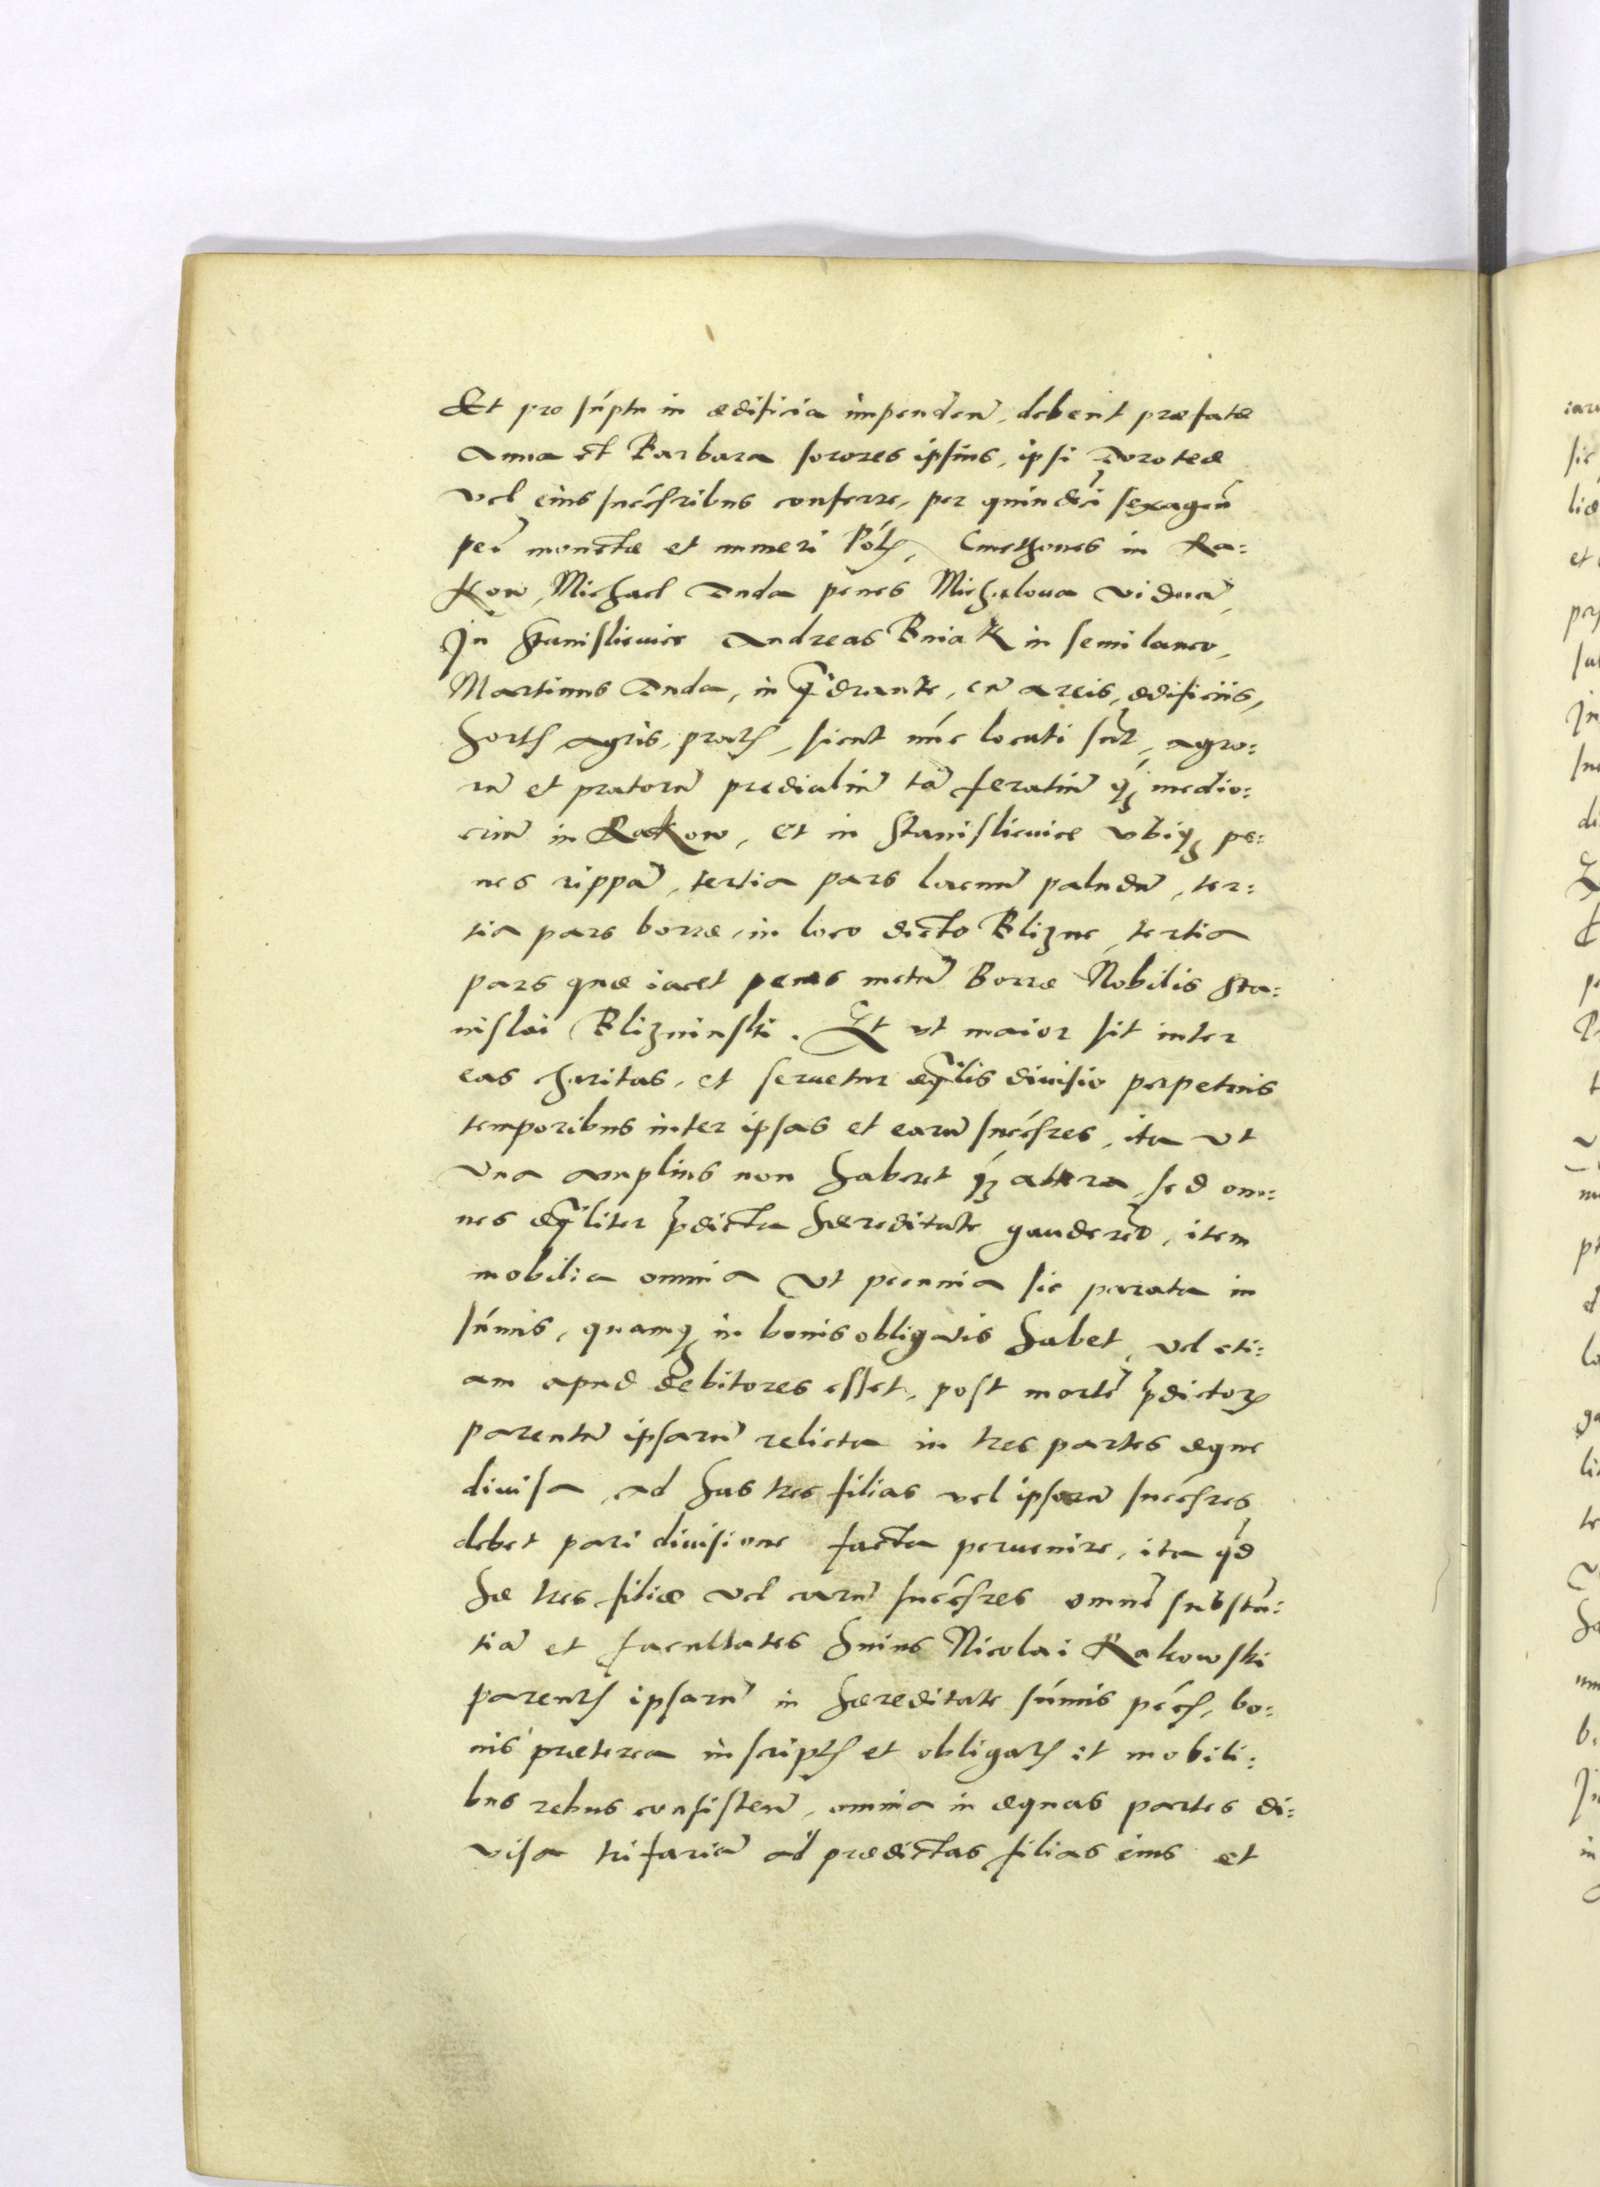 Et pro sũptu in ædificia impenden̄, debent præfatæ
Anna et Barbara sorores ipsius, ipsi Doroteæ
vel eius succ̃sribus conferre, per quindeci̅ sexagen̅
pec̄ monetæ et numeri Pol̃, Cmethones in Ra=
kow, Michael Duda penes Michalova viduā,
In Stanislievice Andreas Bniak in semilaneo,
Martinus Duda, in qͣdrante, cū areis, ædificiis,
hort̃, agris, prat̃, sicut nũc locati sūt, agro=
rū et pratorū prædialiū tā feratiū qꝫ medio=
criū in Rakow, Et in Stanislievice vbiqꝫ pe=
nes rippā, tertia pars lacuū paludū, ter=
tia pars borræ, in loco dicto Blizne, tertia
pars quæ iacet penes metā Borræ Nobilis Sta=
nislai Blizninski. Et vt maior sit inter
eas charitas, et seruetur æqͣlis diuisio perpetuis
temporibus inter ipsas et earū succ̃sres, ita vt
vna amplius non haberet qꝫ altera, sed om=
nes æqͣliter p̄dicta hæreditate gauderēt, item
mobilia omnia vt pecunia sic parata in
sũmis, quamqꝫ in bonis obligatis habet, vel eti=
am apud debitores esset, post mortē p̄dictoꝝ
parentū ipsarū relicta in tres partes æque
diuisa, ad has tres filias vel ipsarū succ̃sres
debet pari diuisione facta peruenire, ita qd̄
hæ tres filiæ vel earū succ̃sres omnē substā=
tiā et facultates huius Nicolai Rakowski
parent̃ ipsarū in hæreditate sũmis pec̃, bo=
nis præterea inscript̃ et obligat̃ it mobili=
bus rebus consisten̄, omnia in æquas partes di=
visa trifariā ad prædictas filias eius et